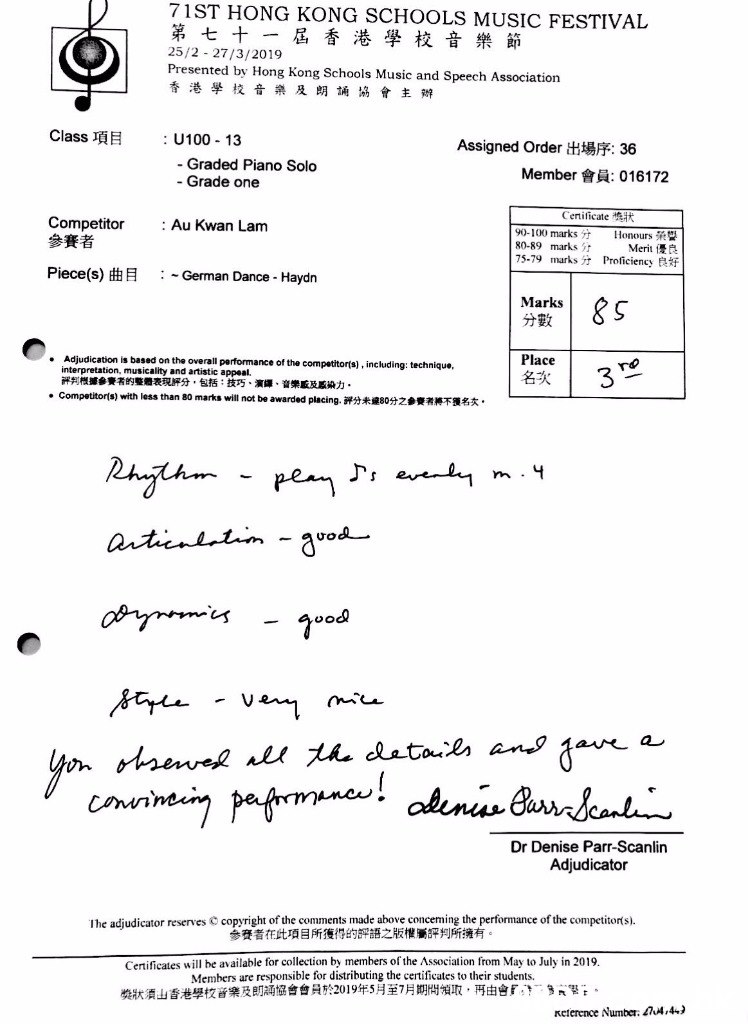 71ST HONG KONG SCHOOLS MUSIC FESTIVAL
第七十一屆香港學校音樂節
25/2 - 27/3/2019
Presented by Hong Kong Schools Music and Speech Association
香港學校音樂及朗誦協會主辦
Class 項目 : U100 - 13
- Graded Piano Solo
- Grade one
Assigned Order 出場序: 36
Member 會員: 016172
Competitor : Au Kwan Lam
參賽者
Piece(s) 曲目 : ~ German Dance - Haydn
Certificate 獎狀
90-100 marks 分 Honours 榮譽
80-89 marks 分 Merit 優良
75-79 marks 分 Proficiency 良好
Marks 85
分數
Place 3rd
名次
• Adjudication is based on the overall performance of the competitor(s) , including: technique,
interpretation, musicality and artistic appeal.
評判根據參賽者的整體表現評分，包括：技巧、演繹、音樂感及感染力。
• Competitor(s) with less than 80 marks will not be awarded placing. 評分未達80分之參賽者將不獲名次。
Rhythm - play ♪'s evenly m. 4
Articulation - good
Dynamics - good
Style - very nice
You observed all the details and gave a
convincing performance! Denise Parr-Scanlin
Dr Denise Parr-Scanlin
Adjudicator
The adjudicator reserves © copyright of the comments made above concerning the performance of the competitor(s).
參賽者在此項目所獲得的評語之版權屬評判所擁有。
Certificates will be available for collection by members of the Association from May to July in 2019.
Members are responsible for distributing the certificates to their students.
獎狀須由香港學校音樂及朗誦協會會員於2019年5月至7月期間領取，再由會
Reference Number: